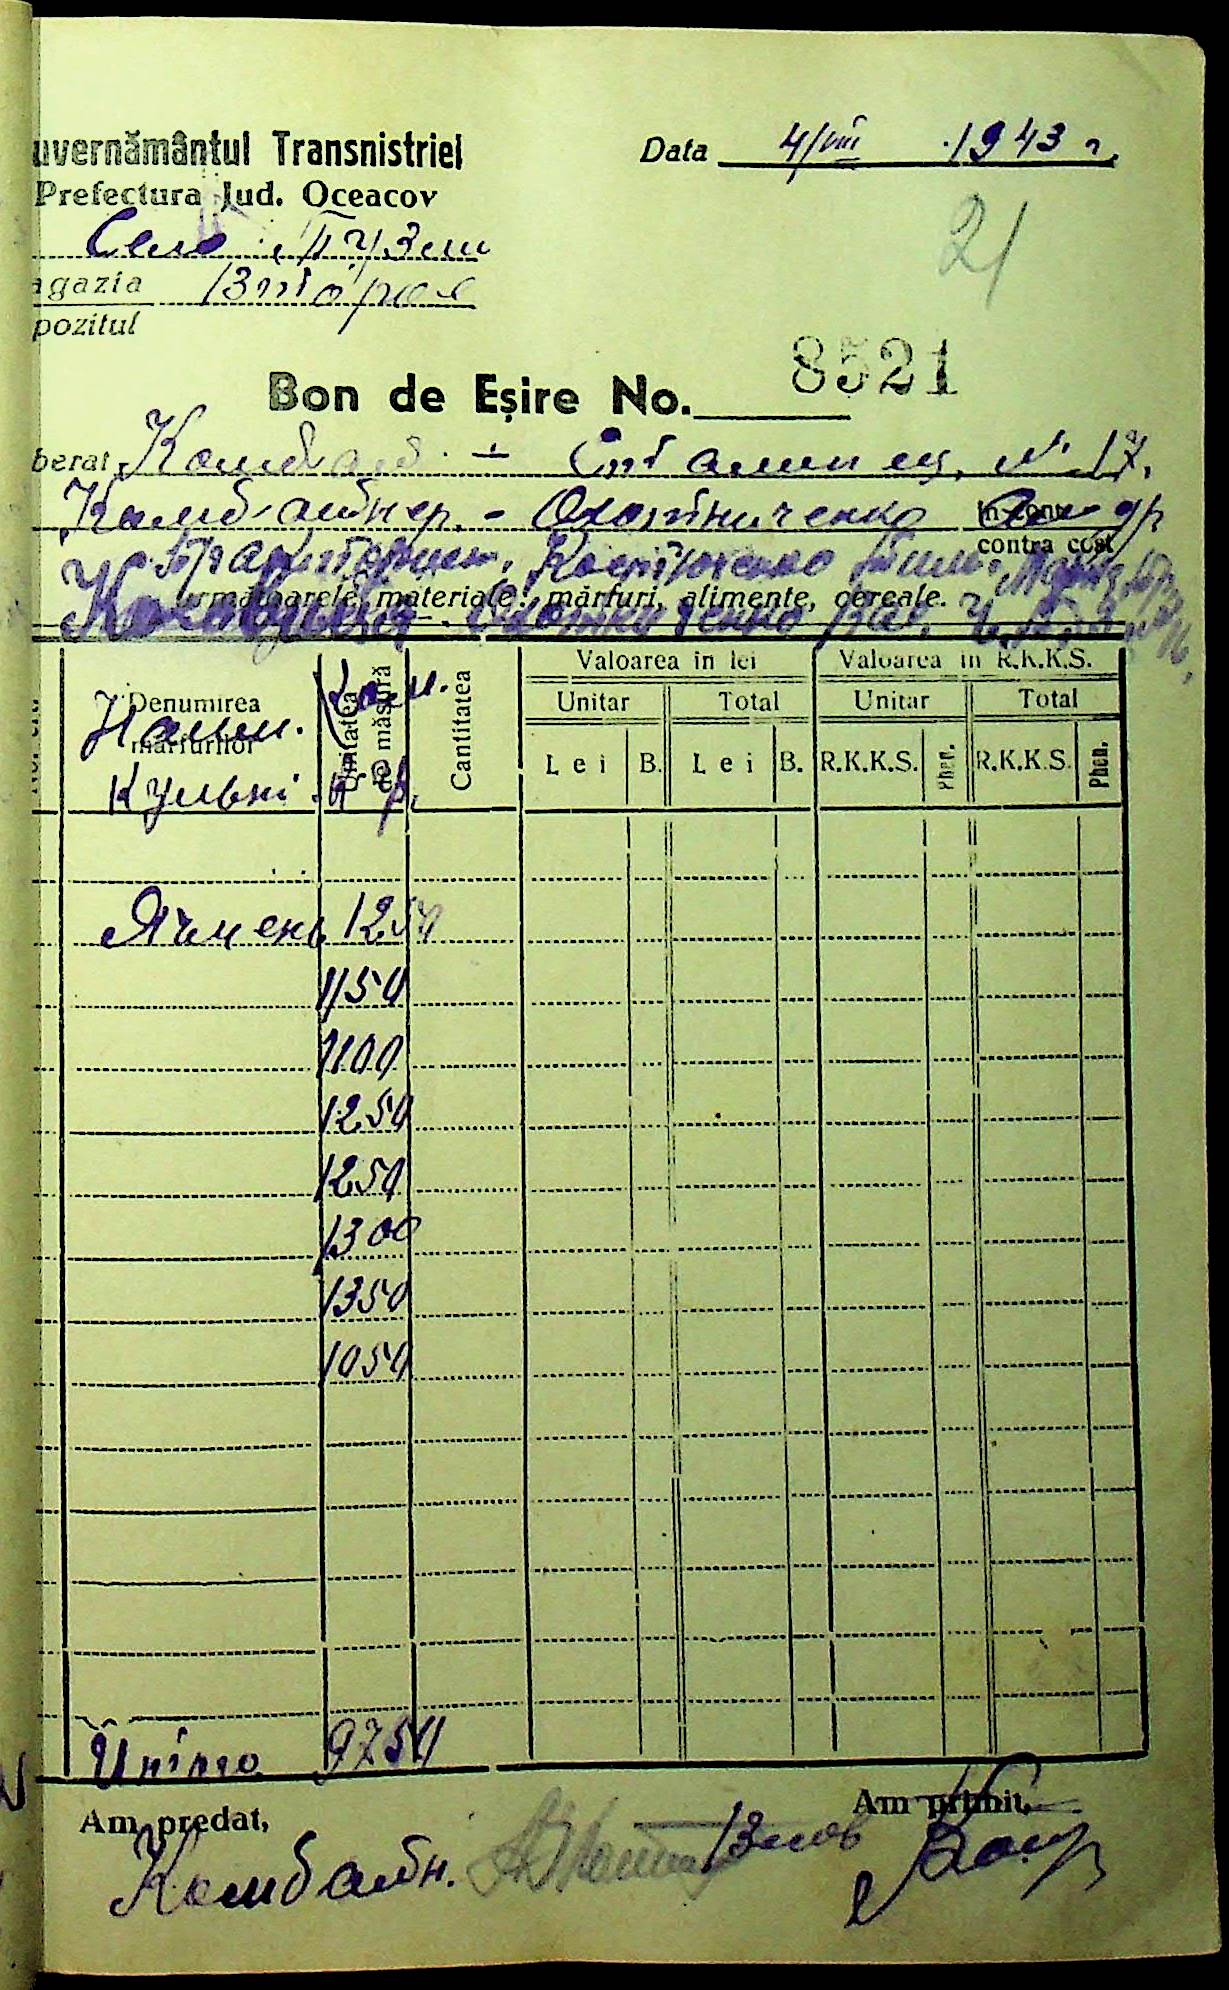 uvernământul Transnistriei
Data 4/VIII 1943 г.
Prefectura Jud. Oceacov
Село Тузли
21
agazia Вторая
pozitul
Bon de Eșire No. 8521
berat Комбайн - Сталинец № 17.
Комбайнер. - Охотниченко др
in cont
contra cost
Тракторист, Костюченко
următoarele materiale: mărfuri, alimente, cereale.
Охотниченко
Denumirea mărfurilor
Наим. культ.
Unitatea de măsură
Cantitatea
Valoarea in lei
Valoarea in R.K.K.S.
Unitar Total Unitar Total
Lei B. Lei B. R.K.K.S. Phen. R.K.K.S. Phen.
Ячмень 1250
1150
1100
1250
1250
1300
1350
1050
Итого 9750
Am predat,
Am primit,
Комбайн.